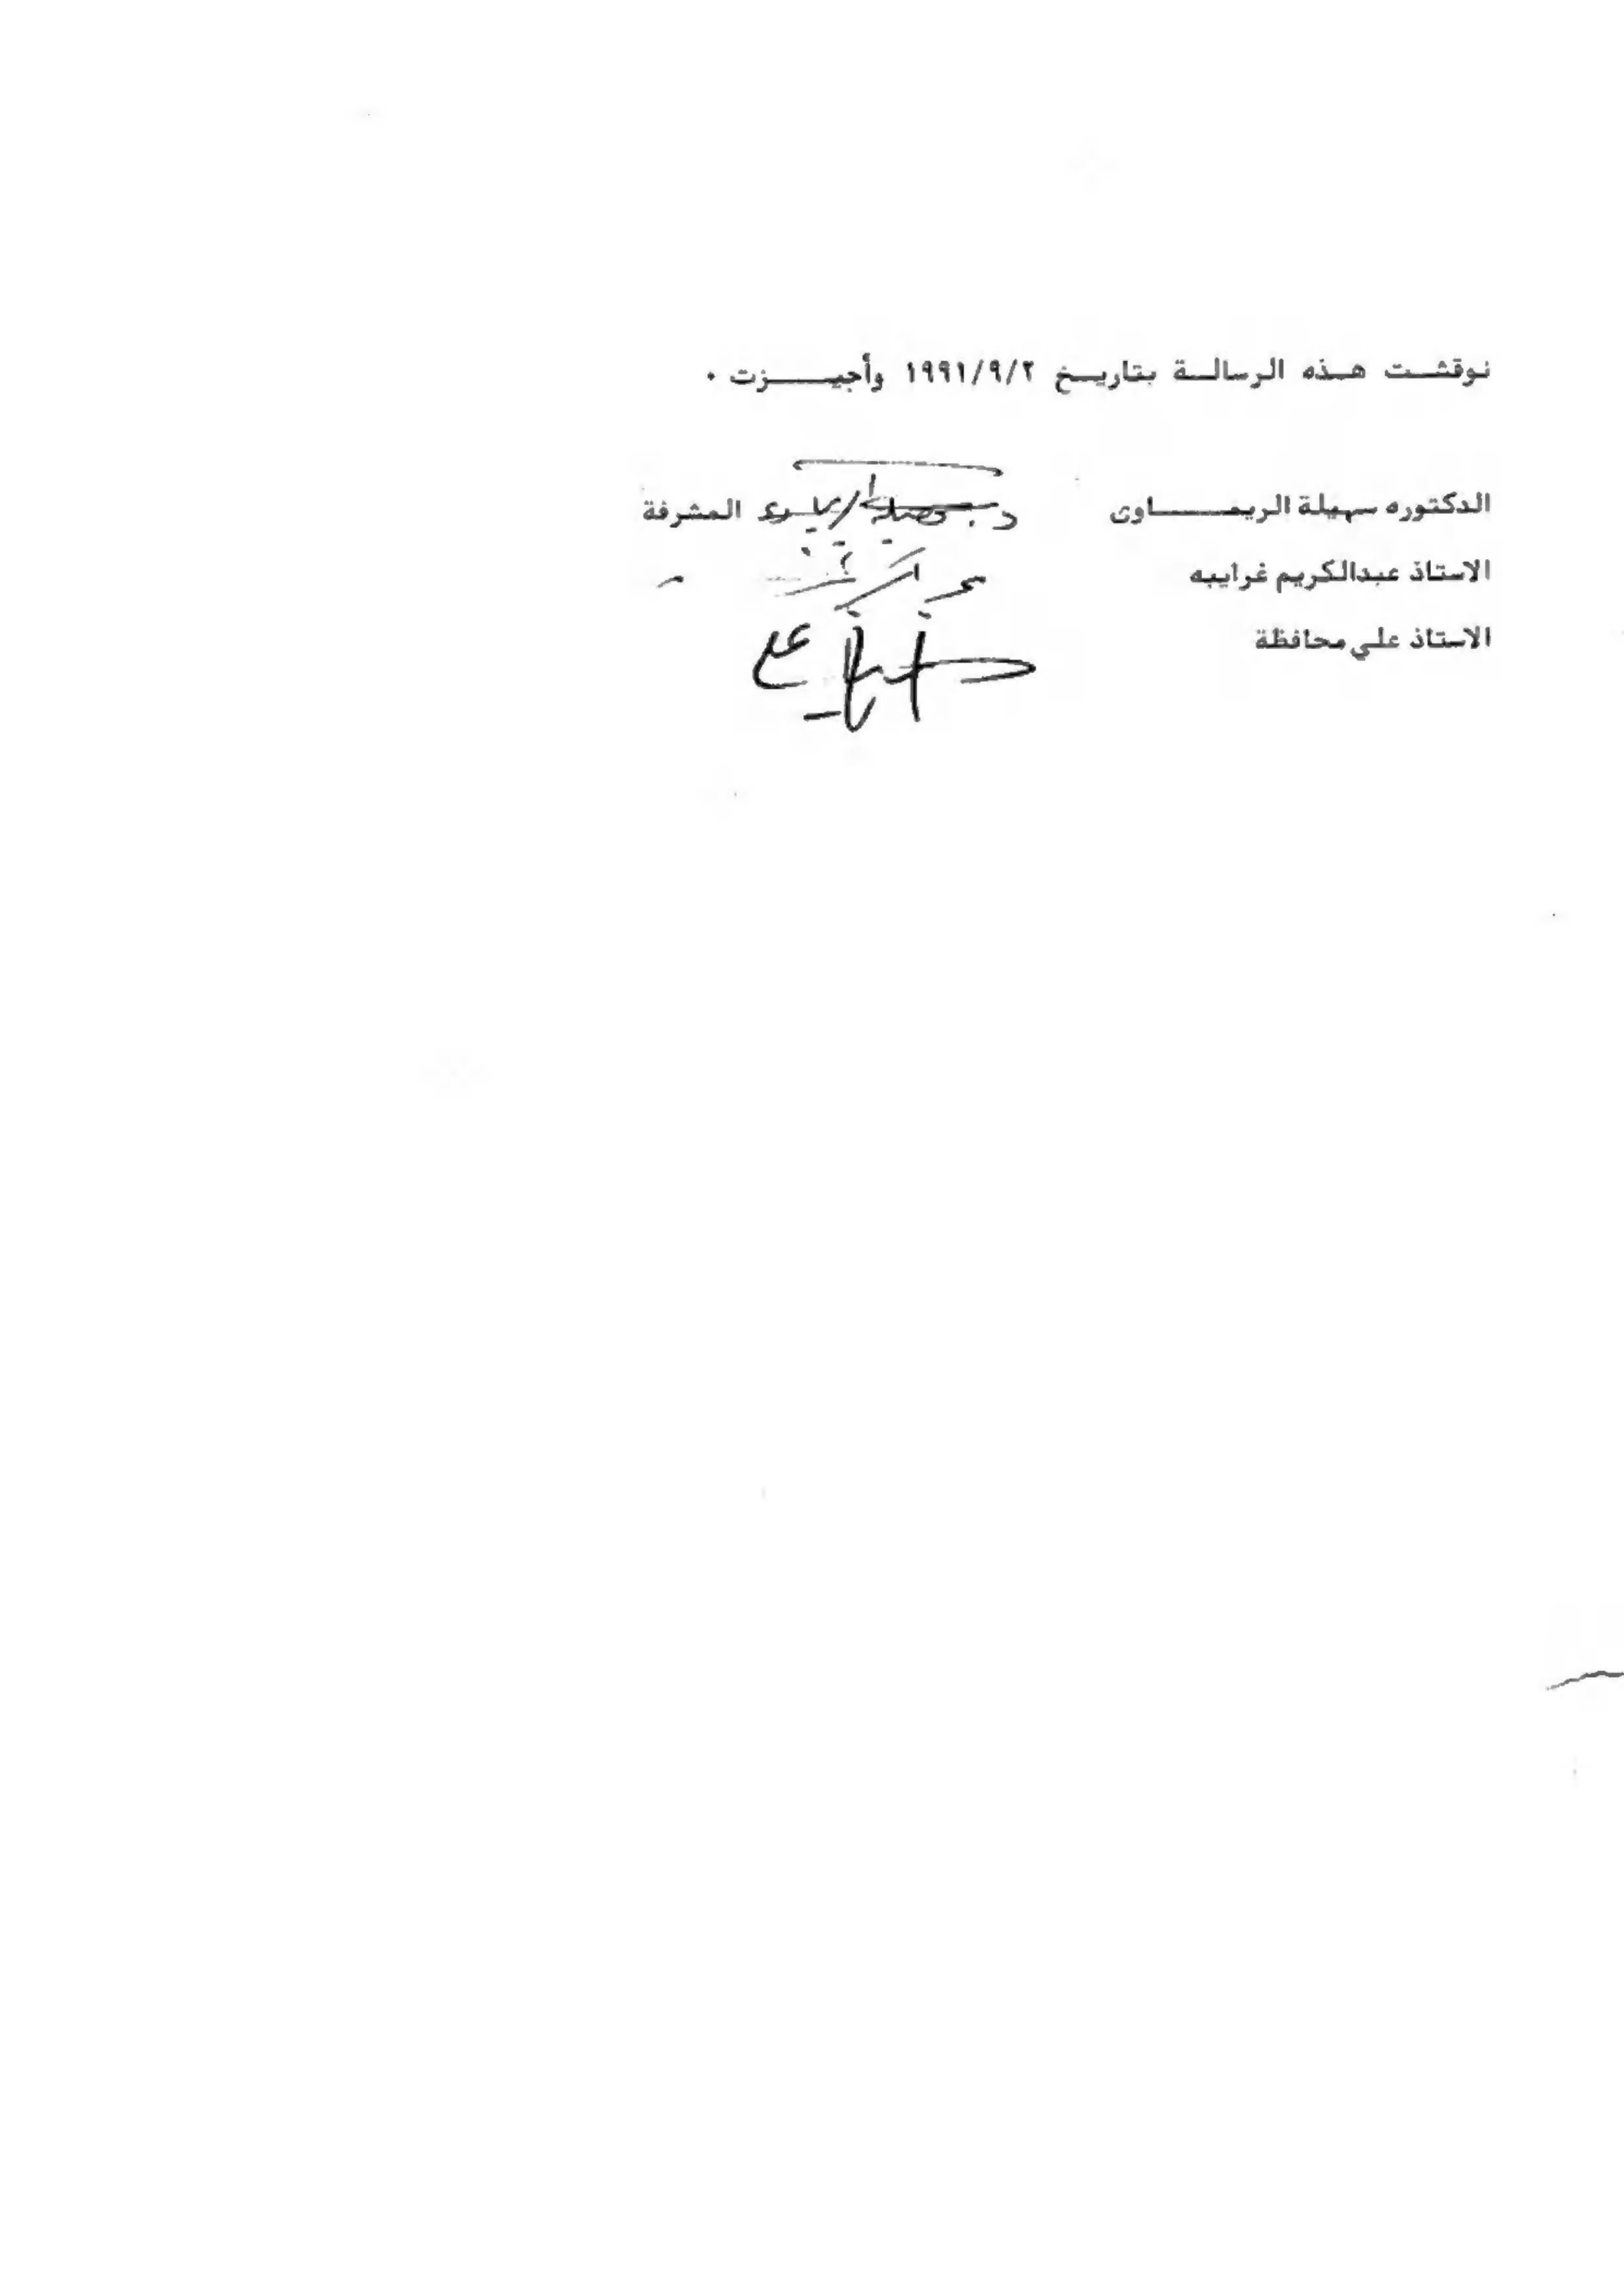 نوقشت هذه الرسالة بتاريخ ١٩٩١/٩/٢ وأجيزت ٠
الدكتوره سهيلة الريماوى المشرفة
الاستاذ عبدالكريم غرايبه
الاستاذ علي محافظة